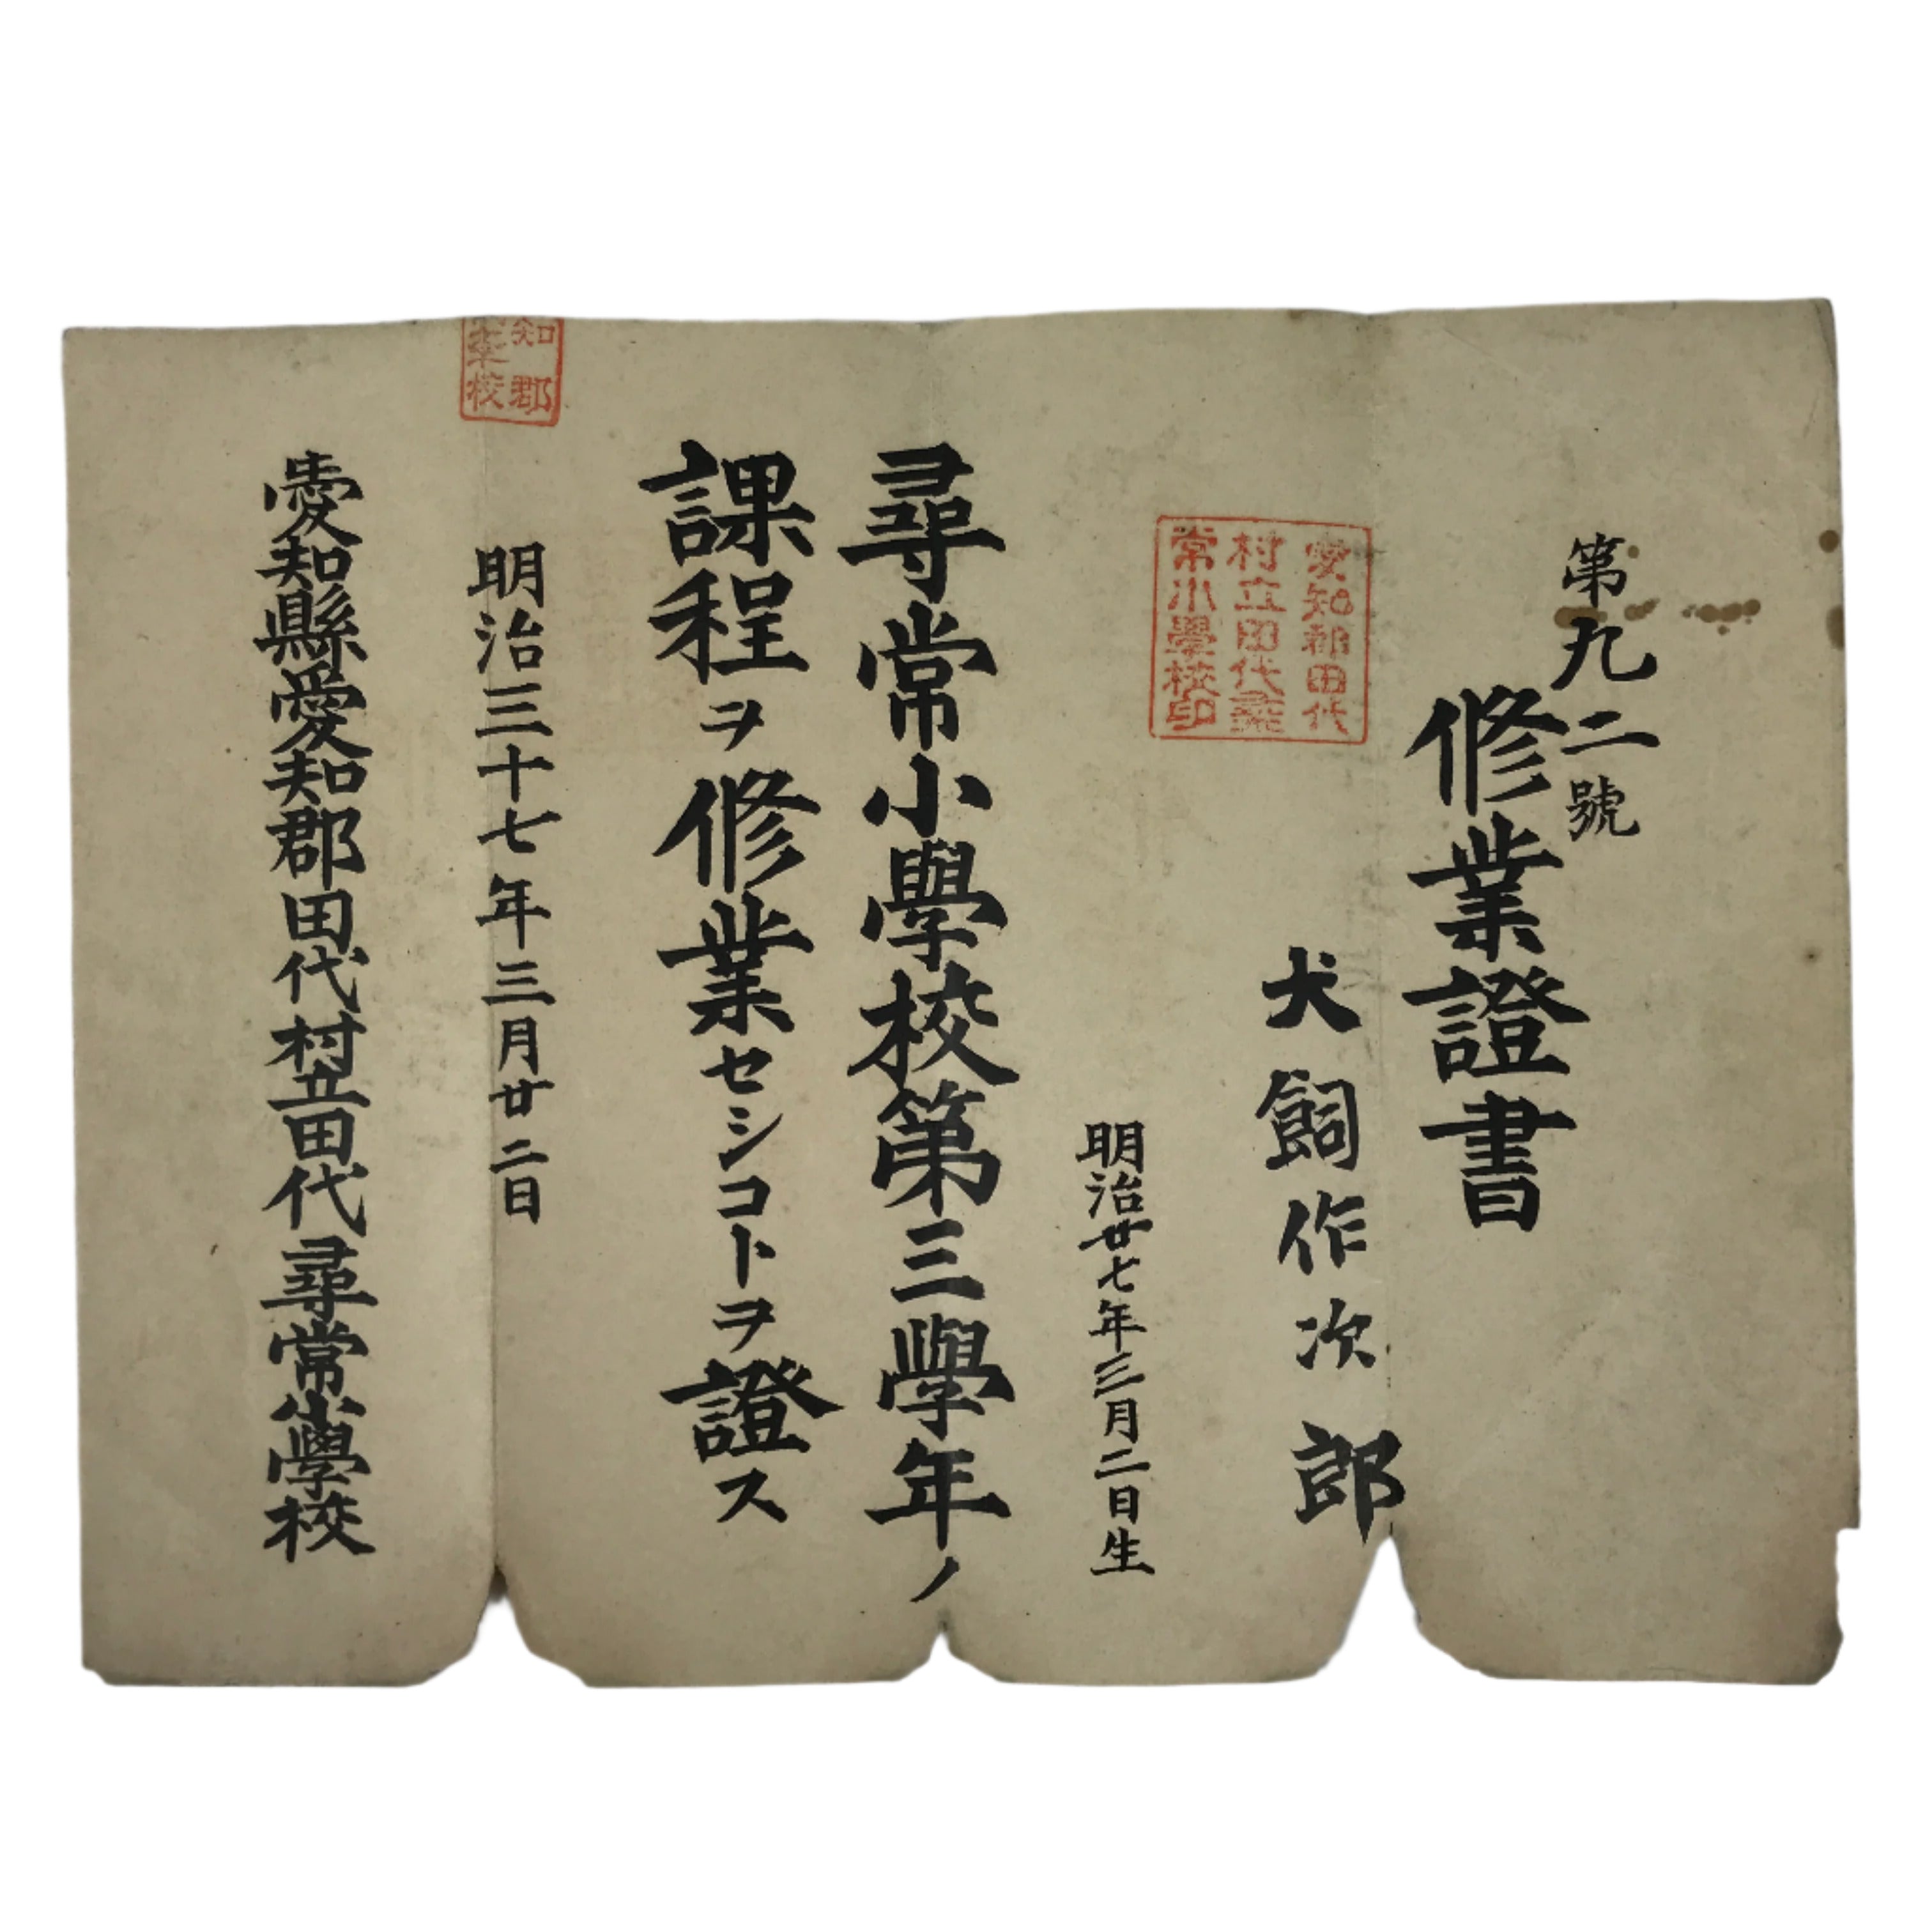 第九二號
修業證書
犬飼作次郎
愛知郡田代
村立田代尋
常小學校印
明治廿七年三月二日生
尋常小學校第三學年ノ
課程ヲ修業セシコトヲ證ス
知郡
校
明治三十七年三月廿二日
愛知縣愛知郡田代村立田代尋常小學校